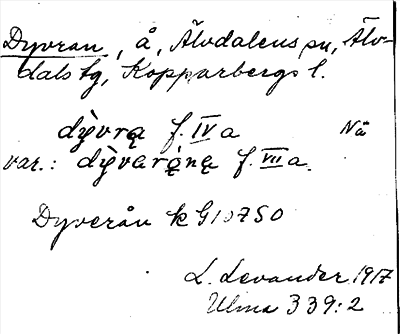 Dyvran, å, Älvdalens sn, Älv-
dals tg, Kopparbergs l.
dỳvrą f. IV a Nå
var.: dỳvarą́ną f. VII a.
Dyverån k G10750
L. Levander 1917
Ulma 339:2